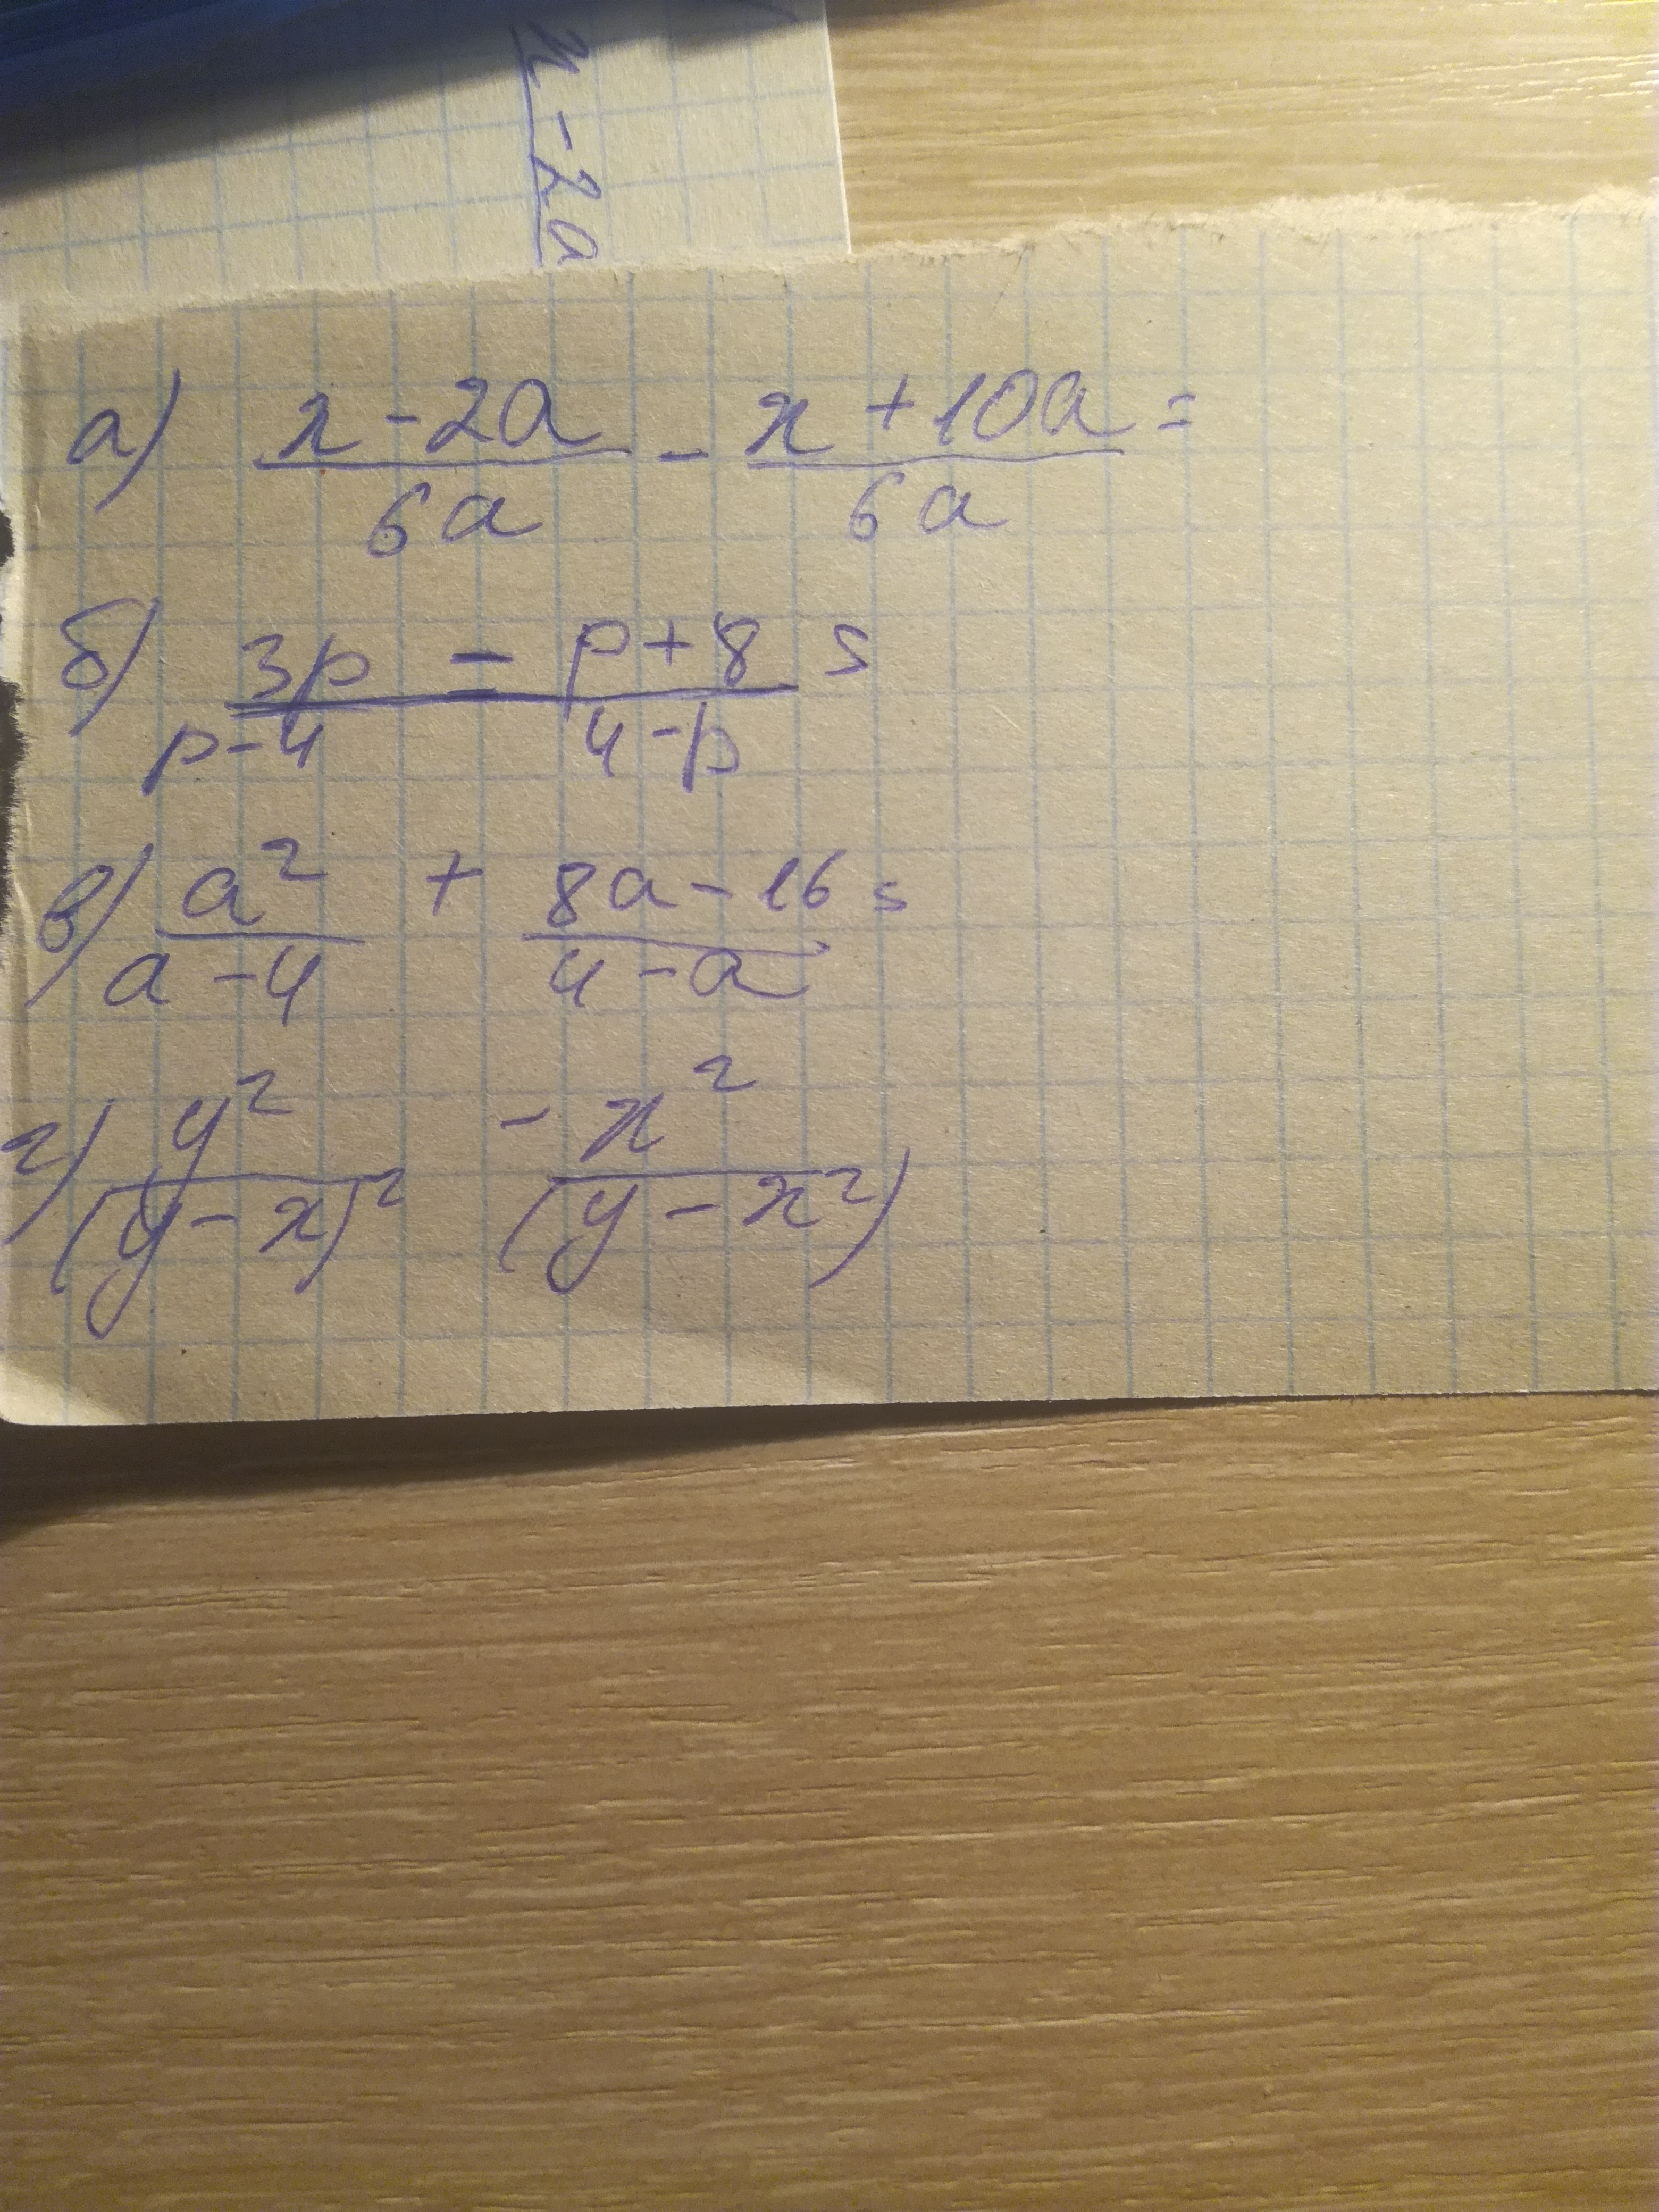 x - 2a
а) x - 2a / 6a - x + 10a / 6a =
б) 3p / p - 4 - p + 8 / 4 - p =
в) a² / a - 4 + 8a - 16 / 4 - a =
г) y² / (y - x)² - x² / (y - x²)